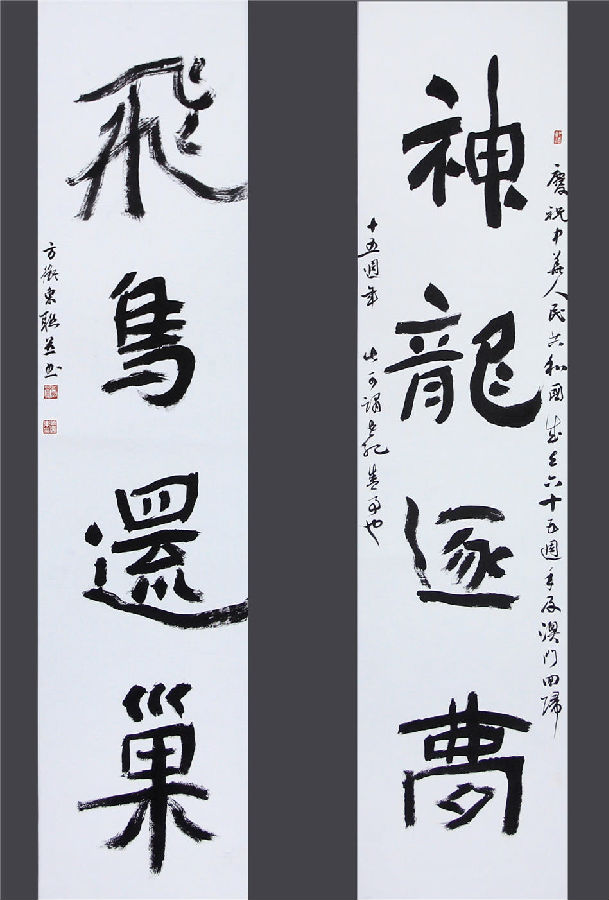 神龍逐夢
慶祝中華人民共和國成立六十五週年及澳門回歸
十五週年 此可謂世紀喜事也
飛鳥還巢
方衛東聯并書